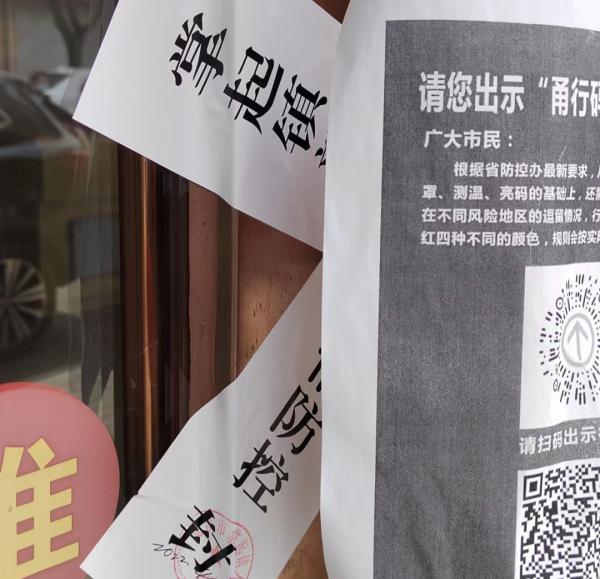 掌起镇
防控
封
2022
请您出示“甬行码
广大市民：
根据省防控办最新要求，
罩、测温、亮码的基础上，还
在不同风险地区的逗留情况，行
红四种不同的颜色，规则会按实
请扫码出示
准